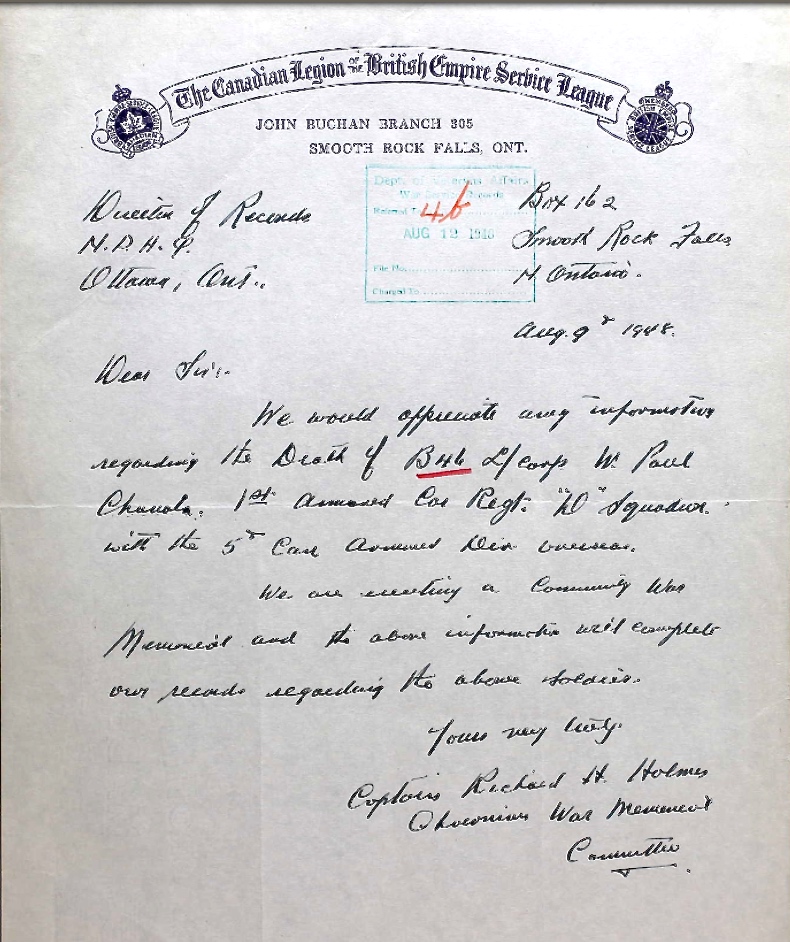 The Canadian Legion OF THE British Empire Service League
JOHN BUCHAN BRANCH 305
SMOOTH ROCK FALLS, ONT.
Dept. of Veterans Affairs
War Service Records
Referred To
46
AUG 12 1948
File No.
Charged To
Director of Records
N.D.H.Q.
Ottawa, Ont..
Box 162
Smooth Rock Falls
N Ontario.
Aug. 9th 1948.
Dear Sir:-
We would appreciate any information
regarding the Death of B46 L/Corp W. Paul
1st Armoured Car Regt. "D" Squadron.
with the 5th Can Armoured Div overseas.
We are erecting a Community War
Memorial and the above information will complete
our records regarding the above soldier.
Yours very truly.
Captain Richard H. Holmes
War Memorial
Committee